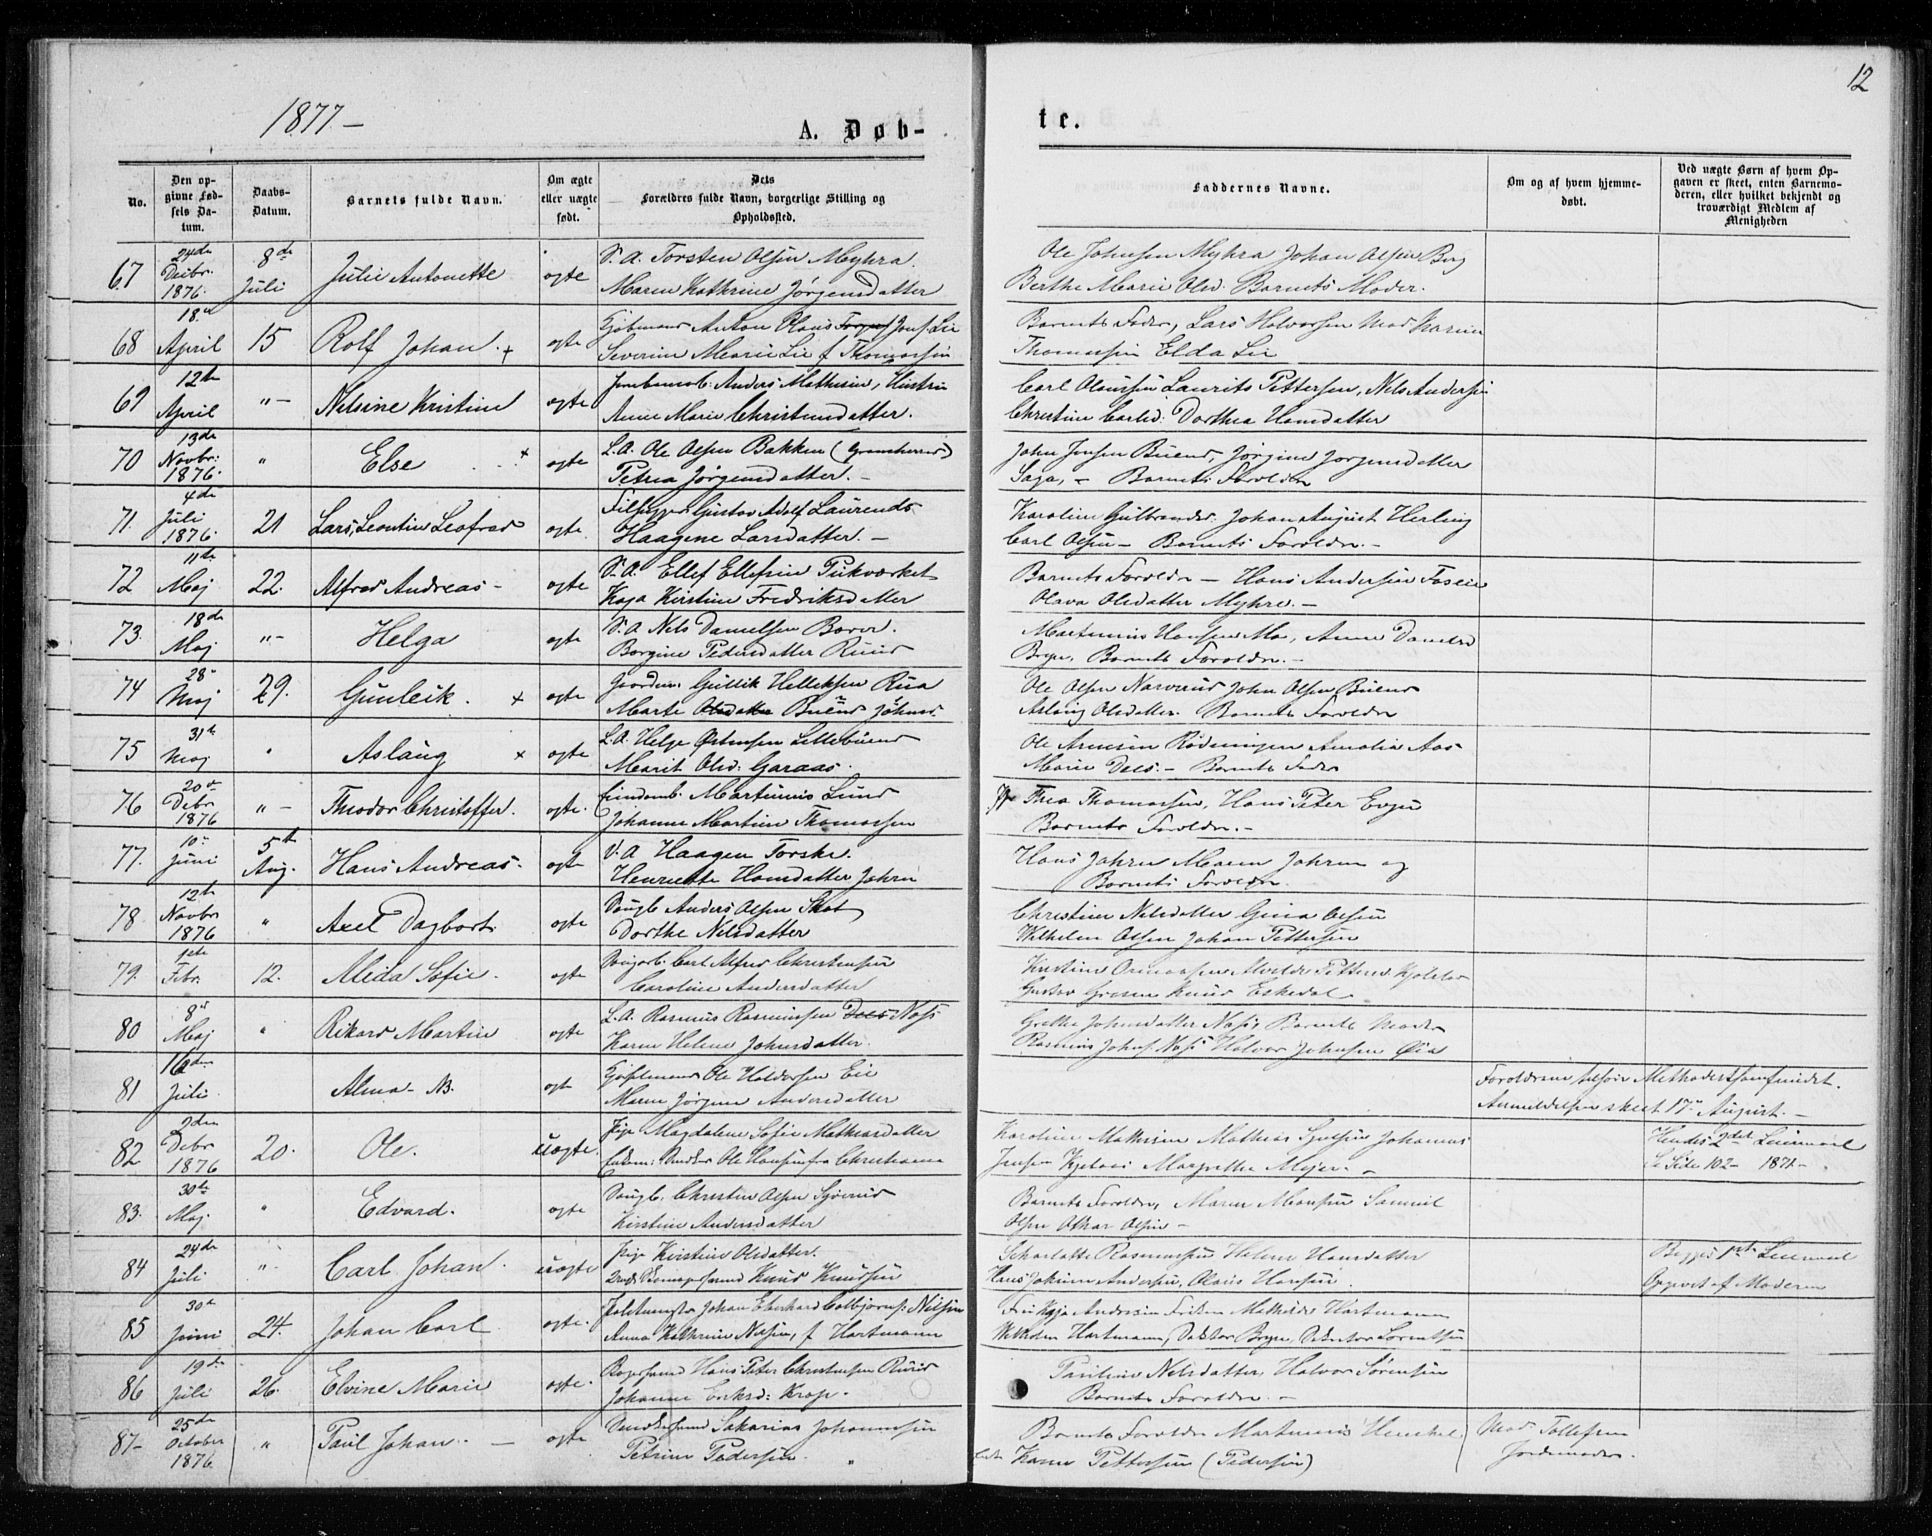 1877 –
12
A. Døb-
te.
No.
Den op-
givne Fød-
sels Da-
tum.
Daabs-
Datum.
Barnets fulde Navn.
Om ægte
eller uægte
født.
Dets
Forældres fulde Navn, borgerlige Stilling og
Opholdssted.
Faddernes Navne.
Om og af hvem hjemme-
døbt.
Ved uægte Børn af hvem Op-
gaven er skeet, enten Barnemo-
deren, eller hvilket bekjendt og
troværdigt Medlem af
Menigheden
67 24de Decbr. 1876. 8de Juli Julie Antonette ægte
S. A. Torsten Olsen Myhra
Maren Kathrine Jørgensdatter
Ole Johnsen Myhra Johan Olsen Berg
Berthe Marie Olsd. Barnets Moder.
68 18de April 15 Rolf Johan. + ægte
Kjøbmand Anton Olaus Jons. Lie
Severine Marie Lie f Thomassen
Barnets Fader, Lars Halvorsen Mad Karine
Thomassen Elda Lie
69 12te April "– Nelsine Kristine ægte
Anders Mathisen, Hustru
Anne Marie Christensdatter.
Carl Olaussen Laurits Pettersen, Nils Andersen
Christine Carlsd. Dorthea Hansdatter
70 13de Novbr: 1876. " Else + ægte
L. A. Ole Olsen Bakken (Gransherred)
Petrea Jørgensdatter. –
John Jensen Buend, Jørgine Jørgensdatter
Saga, – Barnets Foreldre
71. 4de Juli 1876. 21 Lars Leontin Leofred ægte.
Gustav Adolf Laurends
Haagene Larsdatter. –
Karoline Gulbrandsd. Johan August Herling
Carl Olsen – Barnets Foreldre. –
72 11te Maj 22. Alfred Andreas – ægte
S. A. Ellef Ellefsen Pukværket
Kaja Kirstine Fredriksdatter
Barnets Foreldre – Hans Andersen Fosein
Olava Olsdatter Myhre. –
73. 18de Maj "– Helga ægte
S. A Nils Danielsen
Borgine Pedersdatter Ruud
Martinius Hansen Mo, Anne Danielsd
Barnets Foreldre. –
74 28de Maj 29. Gunleik. + ægte
Gaardm. Gullik Helleksen Rua
Marte Olsdatter Buend Johnsd.
Ole Olsen Narverud John Olsen Buend
Aslaug Olsdatter. Barnets Foreldre
75 31te Maj " Aslaug + ægte
L. A. Helge Østensen Lillebuend
Marit Olsd: Garaas.
Ole Arnesen Rødningen Amalia Aas
Marie Dals. – Barnets Fader
76 20de Debr 1876 "– Theodor Christoffer. ægte.
Eiendomb. Martinius Lund
Johanne Martine Thomassen
Thea Thomassen, Hans Peter Evju
Barnets Foreldre. –
77. 10de Juni 5te Aug. Hans Andreas. ægte
V. A Haagen Torske.
Henriette Hansdatter Jahrn
Hans Jahrn Maren Jahrnn og
Barnets Foreldre.
78. 12te Novbr 1876 " Axel Dagbart ægte
Anders Olsen Skot
Dorthe Nilsdatter
Christine Nilsdatter Gina Olsen
Wilhelm Olsen Johan Pettersen
79. 1ste Febr. 12. Alida Sofie. ægte
Carl Alfred Christensen
Caroline Andersdatter
Gustav Gresen Knud Eskedal
80 8de Maj " Rikard Martin ægte
L. A. Rasmus Rasmussen Næss
Karen Helene Johnsdatter.
Grethe Johnsdatter Næss Barnets Moder
Rasmus Johns. Næss Halvor Johnsen Øia
81 16de Juli Alma – NB. ægt
Ole Haldorsen Eie
Maren Jørgine Andersdatter
Foreldrene Methodistsamfundet.
Anmeldelsen skeet 17de August. –
82 2den Debr 1876 20. Ole. uægte.
Pige Magdalene Sofie Mathiasdatter
Ole Hansen fra Christiania
Karoline Mathisen Mathias Johannes
Jensen Margrethe Mejer. –
Hendes 2det Leiermaal
Se Side 102 – 1871 – .
83. 30te Maj. " Edvard. ægte
Christen Olsen
Kirstine Andersdatter
Barnets Foreldre, Maren Monsen Samuel
Olsen Othar Olsen –
84 24de Juli " Carl Johan. uægte
Pige Kirstine Olsdatter.
Knud Knudsen
Scharlotte Rasmussen Helene Hansdatter
Hans Jokum Andersen, Olaus Hansen.
Begges 1ste Leiermaal
Opgivet af Moderen
85 30te Juni 24. Johan Carl ægte.
Johan Eberhard Colbjørns: Nilsen
Anna Kathrine Nilsen, f Hartmann
Mathilde Hartmann
Wilhelm Hartmann, Doktor Bryn, Lorentsen
86 19de Juli 26. Elvine Marie ægte.
Hans Peter Christensen Ruud
Johanne Eriksd: Krage.
Pauline Nelsdatter, Halvor Sørensen
Barnets Foreldre. –
87 – 25de October 1876 " Paul Johan. – ægte
Sakarias Johannesen
Petrine Pedersen. "
Barnets Foreldre Martinius Henschel
Karen Pettersen (Pedersen)
Mad Tollefsen
Jordemoder.